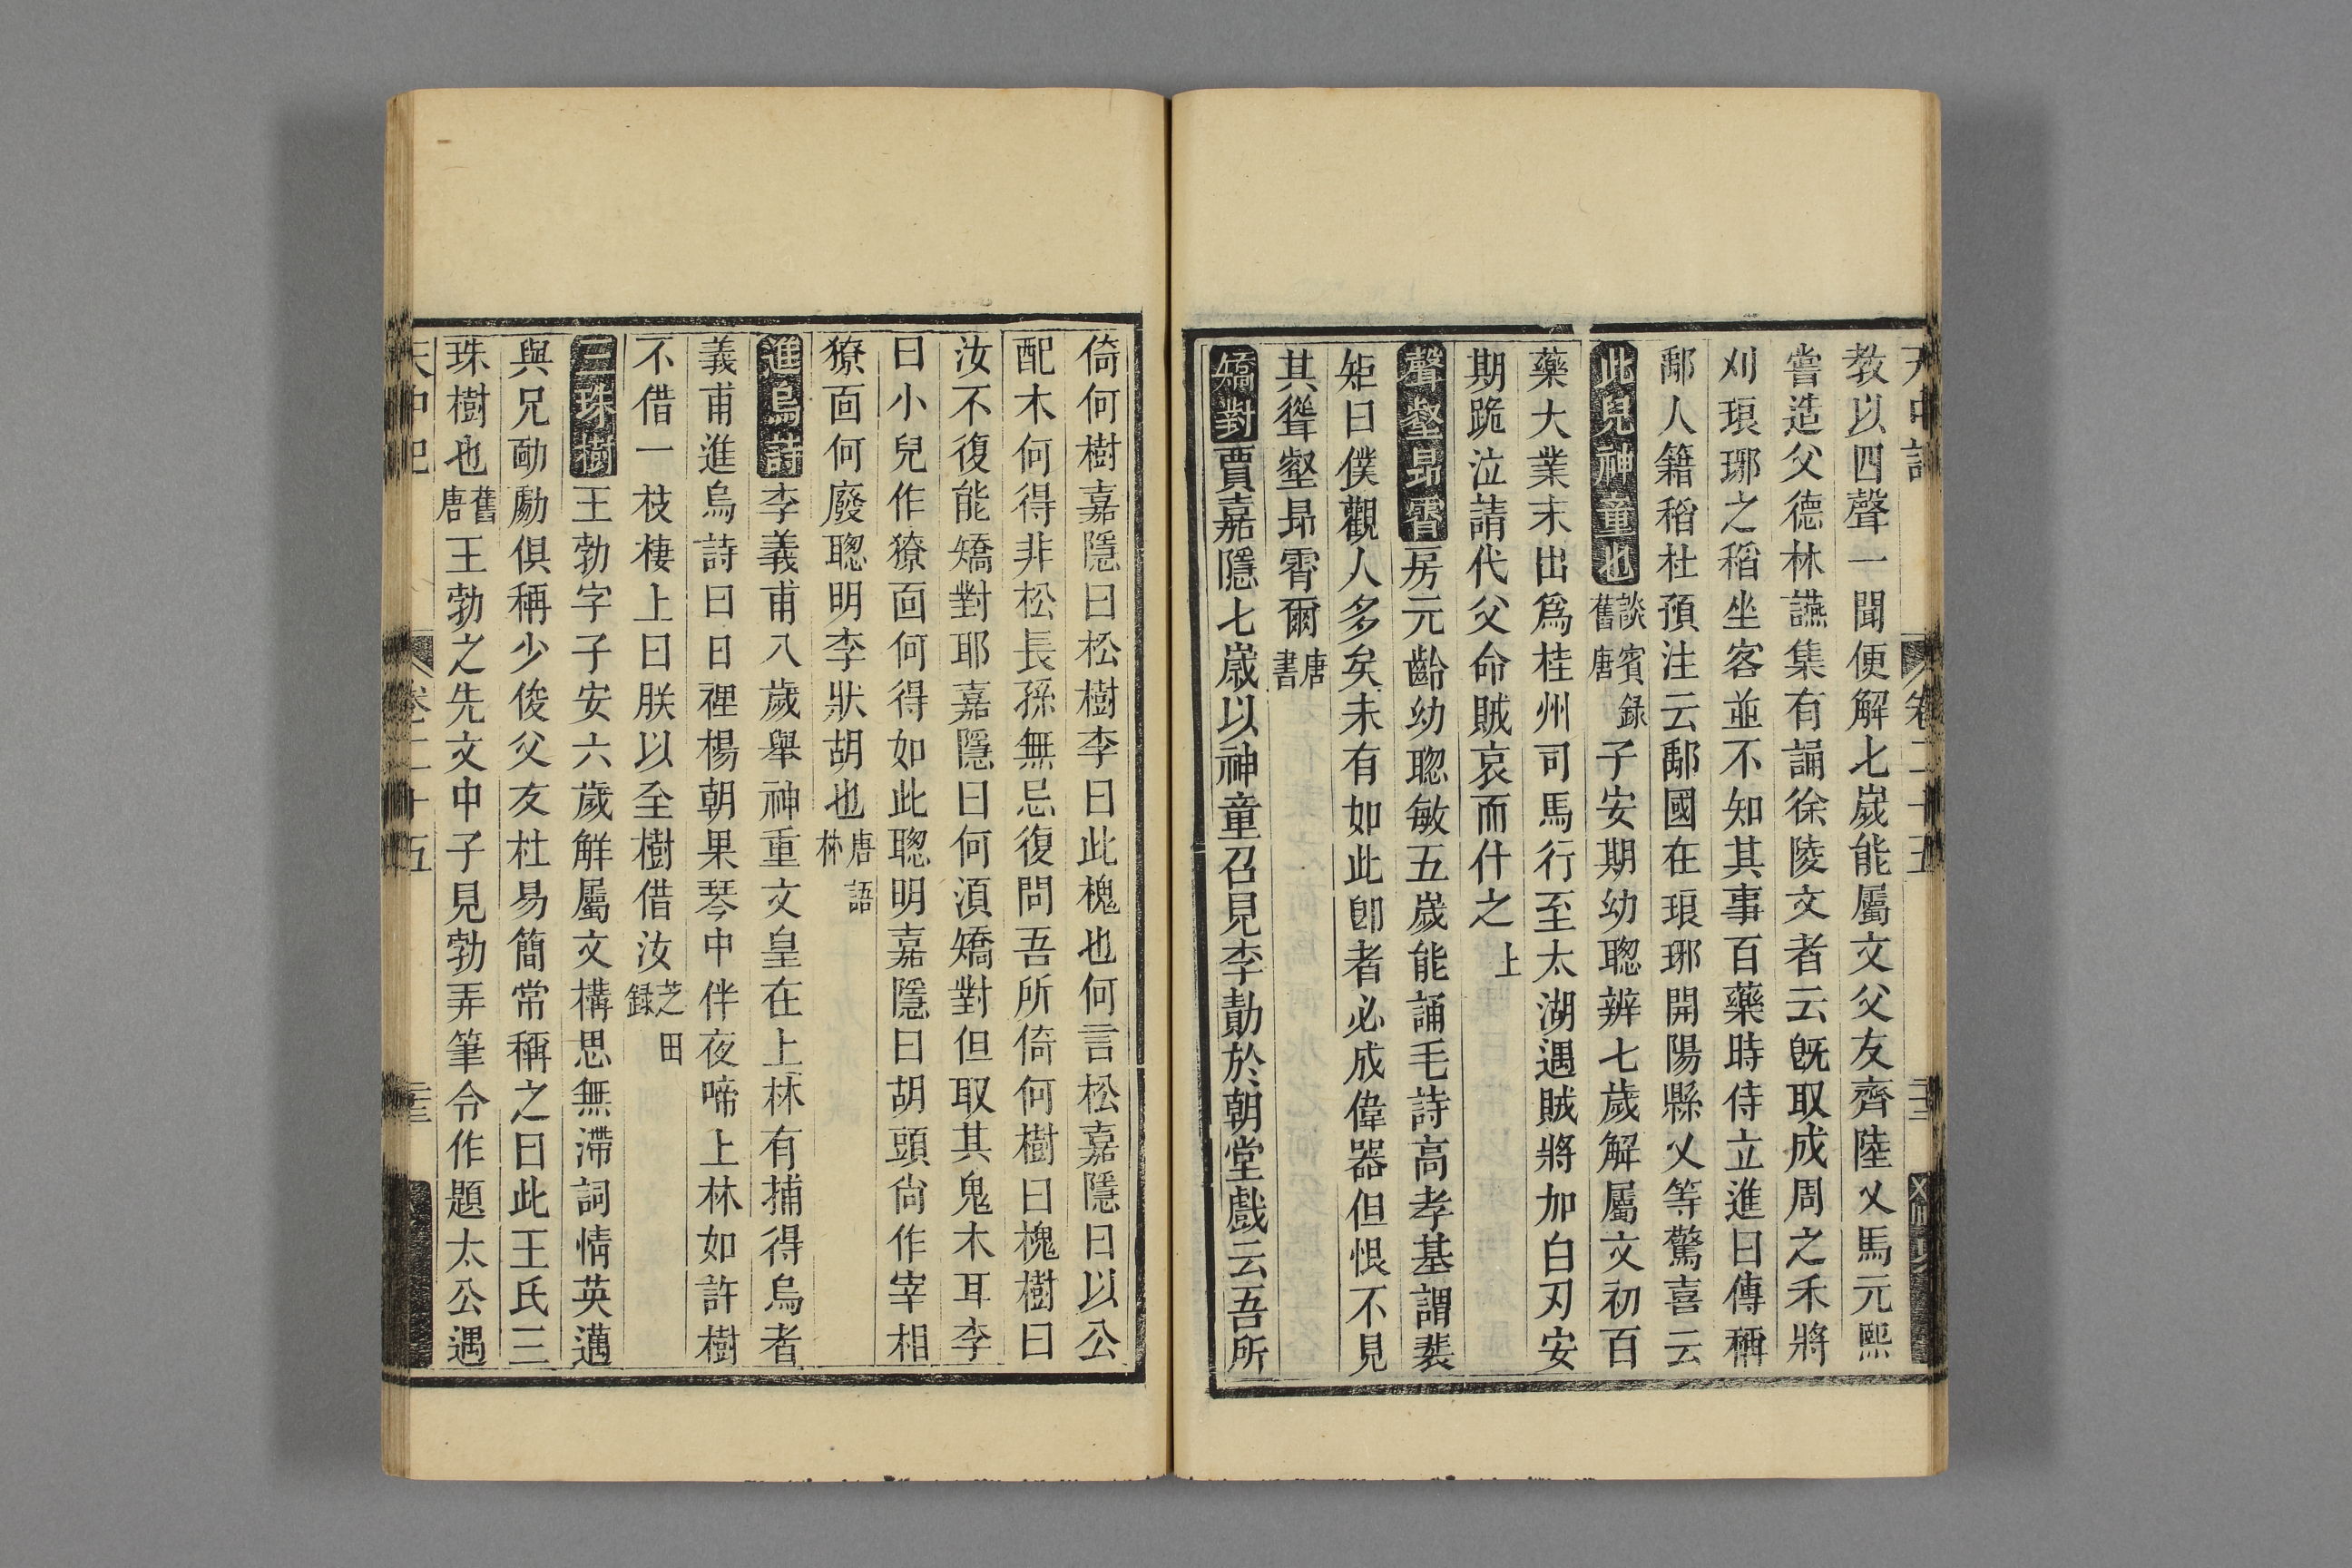 教以四聲一聞便解七歲能屬文父友齊陸乂馬元熙
嘗造父德林讌集有誦徐陵文者云旣取成周之禾將
刈琅琊之稻坐客並不知其事百藥時侍立進曰傳稱
鄅人籍稻杜預注云鄅國在琅琊開陽縣乂等驚喜云
此兒神童也談賓錄舊唐子安期幼聰辨七歲解屬文初百
藥大業末出爲桂州司馬行至太湖遇賊將加白刃安
期跪泣請代父命賊哀而什之上
聲壑昻霄房元齡幼聰敏五歲能誦毛詩高孝基謂裴
矩曰僕觀人多矣未有如此卽者必成偉器但恨不見
其聳壑昻霄爾唐書
矯對賈嘉隱七歲以神童召見李勣於朝堂戲云吾所
倚何樹嘉隱曰松樹李曰此槐也何言松嘉隱曰以公
配木何得非松長孫無忌復問吾所倚何樹曰槐樹曰
汝不復能矯對耶嘉隱曰何湏矯對但取其鬼木耳李
曰小兒作獠面何得如此聰明嘉隱曰胡頭尙作宰相
獠面何廢聰明李狀胡也唐語林
進烏詩李義甫八歲舉神重文皇在上林有捕得烏者
義甫進烏詩曰日裡楊朝果琴中伴夜啼上林如許樹
不借一枝棲上曰朕以至樹借汝芝田録
三珠樹王勃字子安六歲解屬文構思無滯詞情英邁
與兄勔勮俱稱少俊父友杜易簡常稱之曰此王氏三
珠樹也舊唐王勃之先文中子見勃弄筆令作題太公遇